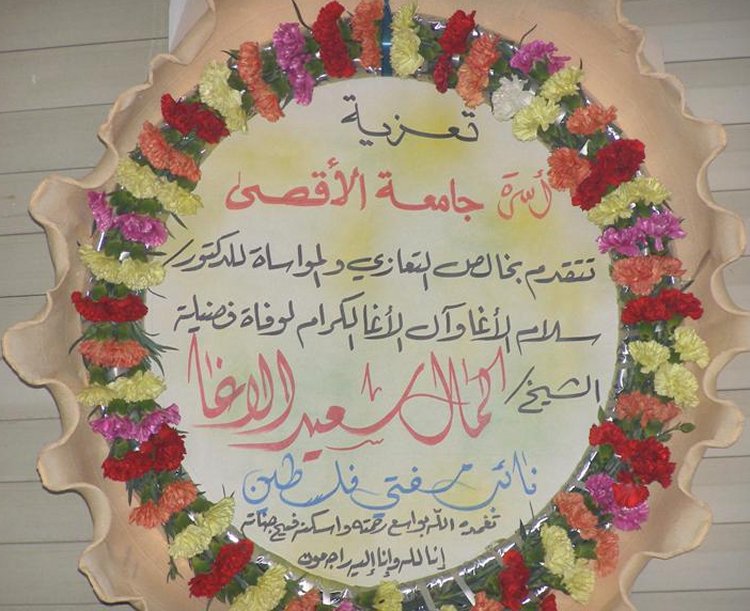 تعزية
أسرة جامعة الأقصى
تتقدم بخالص التعازي والمواساة للدكتور/
سلام الأغا وآل الأغا الكرام لوفاة فضيلة
الشيخ/ كمال سعيد الاغا
نائب مفتي فلسطين
تغمده الله بواسع رحمته واسكنه فسيح جناته
إنا لله وإنا إليه راجعون